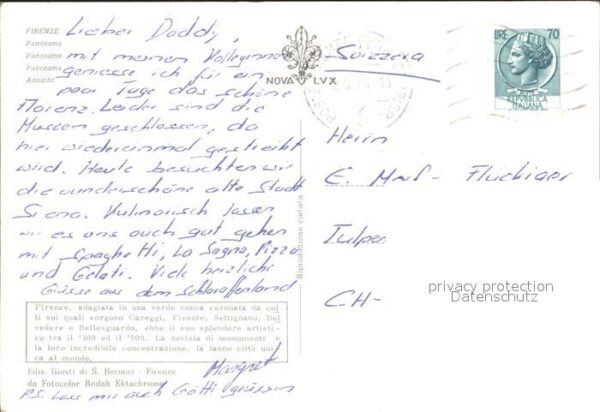 FIRENZE
Panorama
Panorama
Panorama
Ansicht
Lieber Daddy,
mit meinen Kolleginnen
geniesse ich für ein
paar Tage das schöne
Florenz. Leider sind die
Museen geschlossen, da
hier wiedereinmal gestreikt
wird. Heute besuchten wir
die wunderschöne alte Stadt
Siena. Kulinarisch lassen
wir es uns auch gut gehen
mit Spaghetti, La Sagna, Pizza
und Gelati. Viele herzliche
Grüsse aus dem Schlaraffenland
Margret
P.S. Lass mir auch Götti grüssen
NOVA LVX
Riproduzione vietata
Firenze, adagiata in una verde conca coronata da col
li sui quali sorgono Careggi, Fiesole, Settignano, Bel
vedere e Bellosguardo, ebbe il suo splendore artisti-
co tra il '400 ed il '500. La dovizia di monumenti e
la loro incredibile concentrazione, la fanno città uni
ca al mondo.
Ediz. Giusti di S. Becocci - Firenze
da Fotocolor Kodak Ektachrome
LIRE 70
REPVBBLICA
ITALIANA
Svizzera
Herrn
E. - Flückiger
Tulpen
CH-
privacy protection
Datenschutz